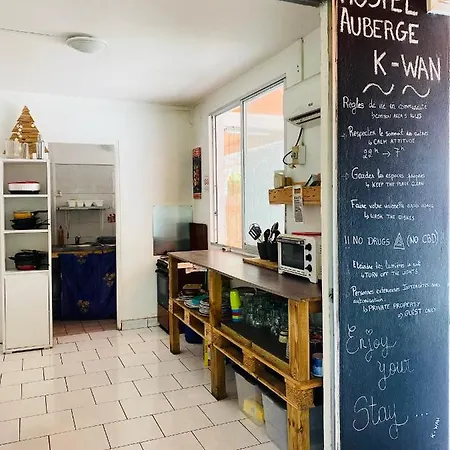 HOSTEL
AUBERGE
K-WAN
Règles de vie en communauté
COMMON AREA'S RULES
Respecter le sommeil des autres
↳ CALM ATTITUDE
22h → 7h
Garder les espaces propres
↳ KEEP THE PLACE CLEAN
Faire votre vaisselle
↳ WASH THE DISHES
!! NO DRUGS (NO CBD)
Eteindre les lumières
↳ TURN OFF THE LIGHTS
Personnes extérieures INTERDITES sans
autorisation.
↳ PRIVATE PROPERTY
↳ GUEST ONLY
Enjoy
your
Stay...
K-WAN